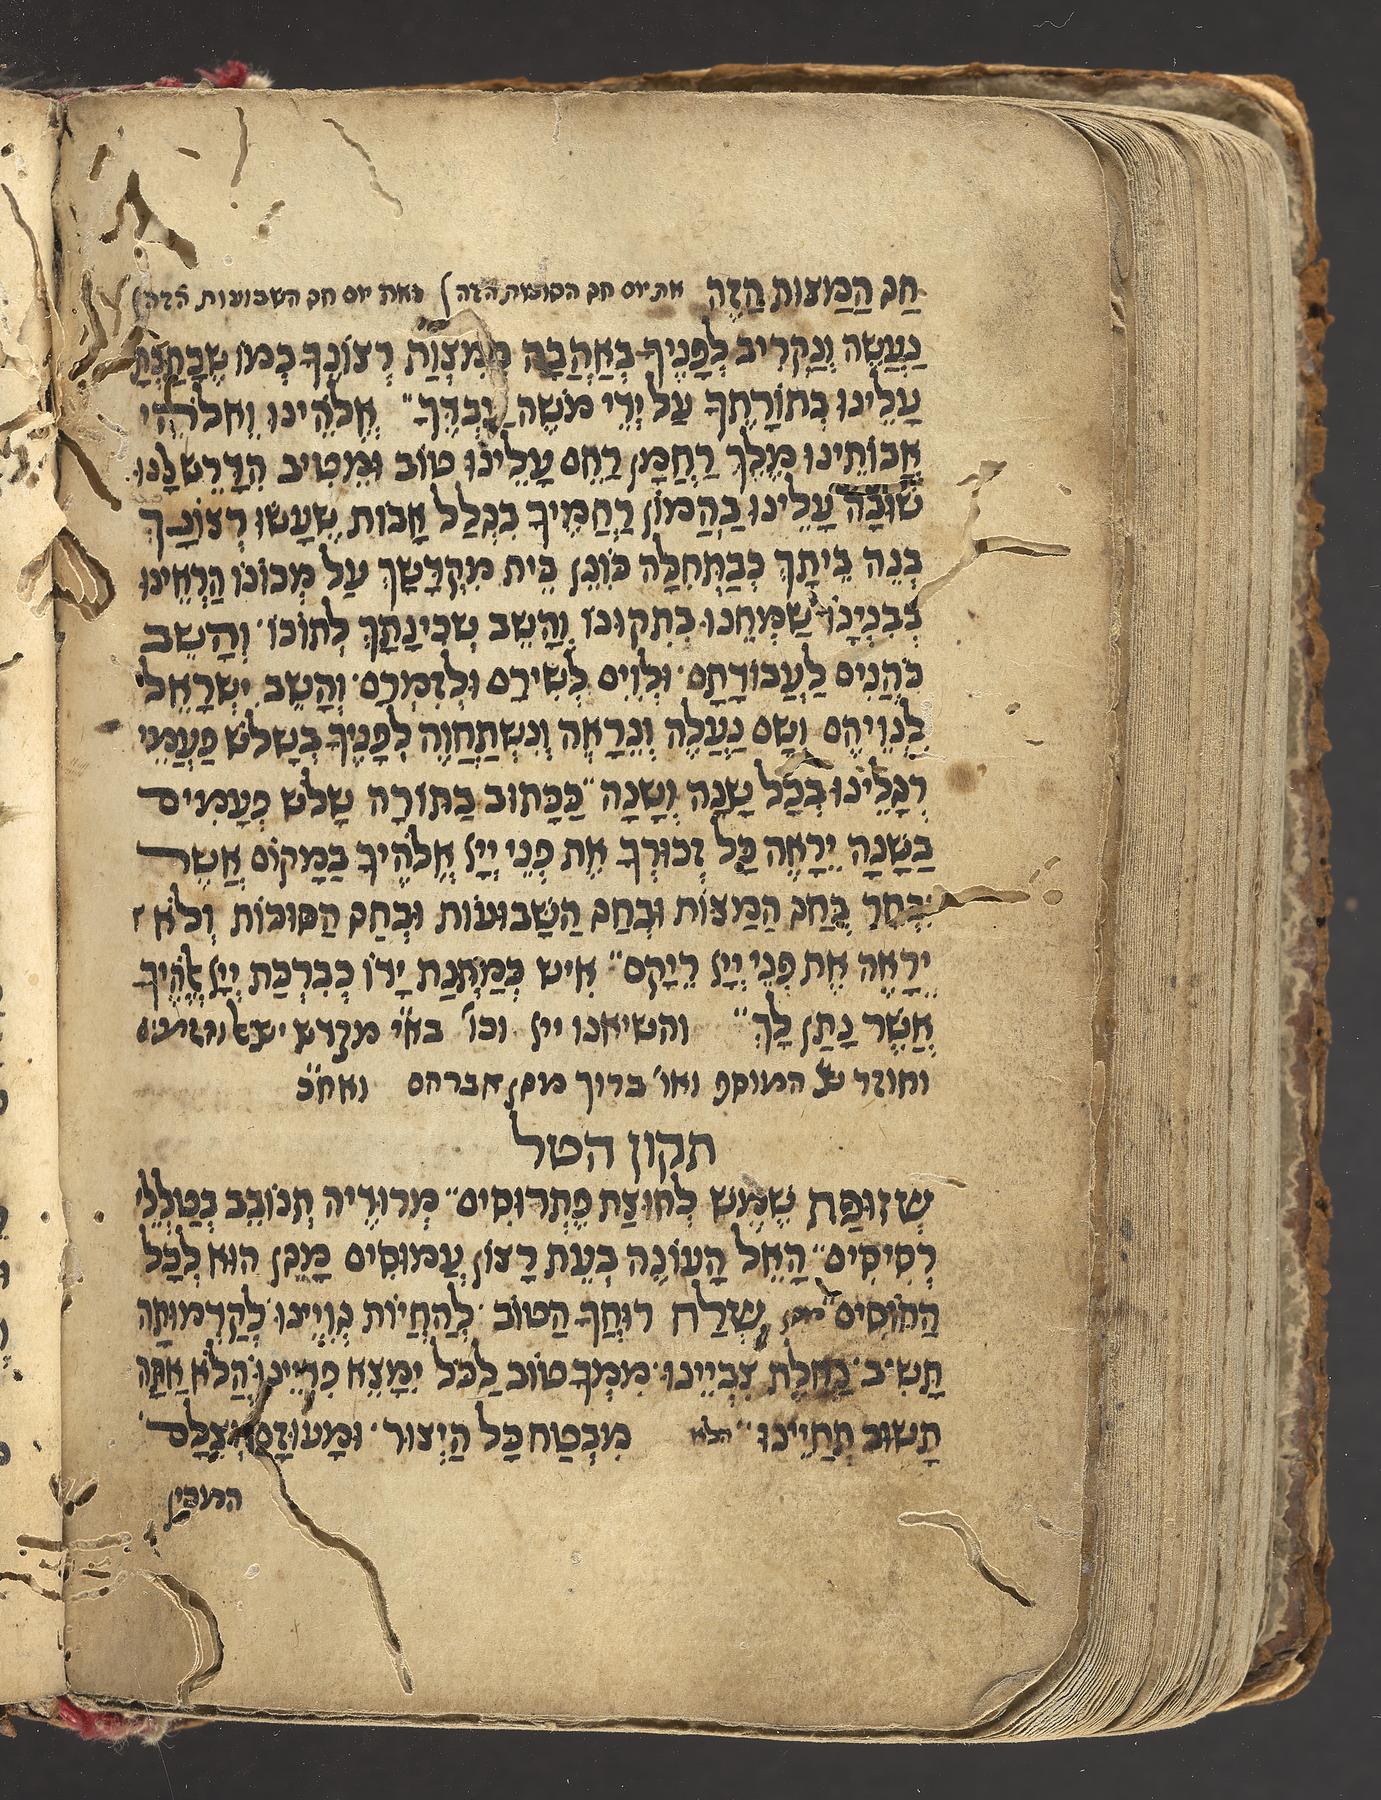 חַג הַמַצוֹת הַזֶה את יום חג הסוכות הזה) כאת יום חג השבועות הזה)
נַעֲשֶה וְנַקְרִיב לְפָנֶיךָ בְאַהֲבָה כְמִצְוַת רְצוֹנֶךָ כְמוֹ שֶכָתַבְתָ
עָלֵינוּ בְתוֹרָתֶךָ עַל יְדֵי מֹשֶה עַבְדֶךָ" אֱלֹהֵינוּ וֵאלֹהֵי
אֲבוֹתֵינוּ מֶלֶךְ רַחֲמָן רַחֵם עָלֵינוּ טוֹב וּמֵטִיב הִדָרֵש לָנוּ
שוּבָה עָלֵינוּ בַהֲמוֹן רַחֲמֶיךָ בִגְלַל אָבוֹת שֶעָשוּ רְצוֹנָךְ
בְנֵה בֵיתָךְ כְבַתְחִלָה כוֹנֵן בֵית מִקְדָשָךְ עַל מְכוֹנוֹ הַרְאֵינוּ
בְבִנְיָנוֹ שַמְחֵנוּ בְתִקוּנוֹ וְהָשֵב שְכִינָתָךְ לְתוֹכוֹ וְהָשֵב
כֹהֲנִים לַעֲבוֹדָתָם וּלְוִיִם לְשִירָם וּלְזִמְרָם וְהָשֵב יִשְרָאֵל
לִנְוֵיהֶם וְשָם נַעֲלֶה וְנֵרָאֶה וְנִשְתַחֲוֶה לְפָנֶיךָ בְשָלש פַעֲמֵי
רְגָלֵינוּ בְכָל שָנָה וְשָנָה" כַכָתוּב בַתוֹרָה שָלש פְעָמִים
בַשָנָה יֵרָאֶה כָל זְכוּרְךָ אֶת פְנֵי יְיָ אֱלֹהֶיךָ בַמָקוֹם אֲשֶר
יִבְחַר בְחַג הַמַצוֹת וּבְחַג הַשָבוּעוֹת וּבְחַג הַסוּכוֹת וְלֹא
יֵרָאֶה אֶת פְנֵי יְיָ רֵיקָם" אִיש כְמַתְנַת יָדוֹ כְבִרְכַת יְיָ אֱלֹהֶיךָ
אֲשֶר נָתַן לָךְ" והשיאנו ייי וכו' בא"י מקדש ישראל והזמנים
וחוזר ש"ץ המוסף ואו' ברוך מגן אברהם ואח"כ
תקון הטל
שְזוּפַת שֶמֶש לְחוּצַת פַתְרוּסִים" מְרוּדֶיהָ תְנוֹבֵב בְטַלְלֵי
רְסִיסִים" הָאֵל הָעוֹנֶה בְעֵת רָצוֹן עֲמוּסִים מָגֵן הוּא לְכָל
הַחוֹסִים" מגן שְלַח רוּחֲךָ הַטוֹב לְהַחֲיוֹת גְוִיֵינוּ לְקַדְמוּתָהּ
תָשִיב נַחֲלַת צִבְיֵינוּ מִמְךָ טוֹב לַכֹל יִמָצֵא פִרְיֵינוּ הֲלֹא אַתָה
תָשוּב תְחַיֵינוּ" הלא מִבְטַח כָל הַיְצוּר וּמָעוּזָם וְצִלָם